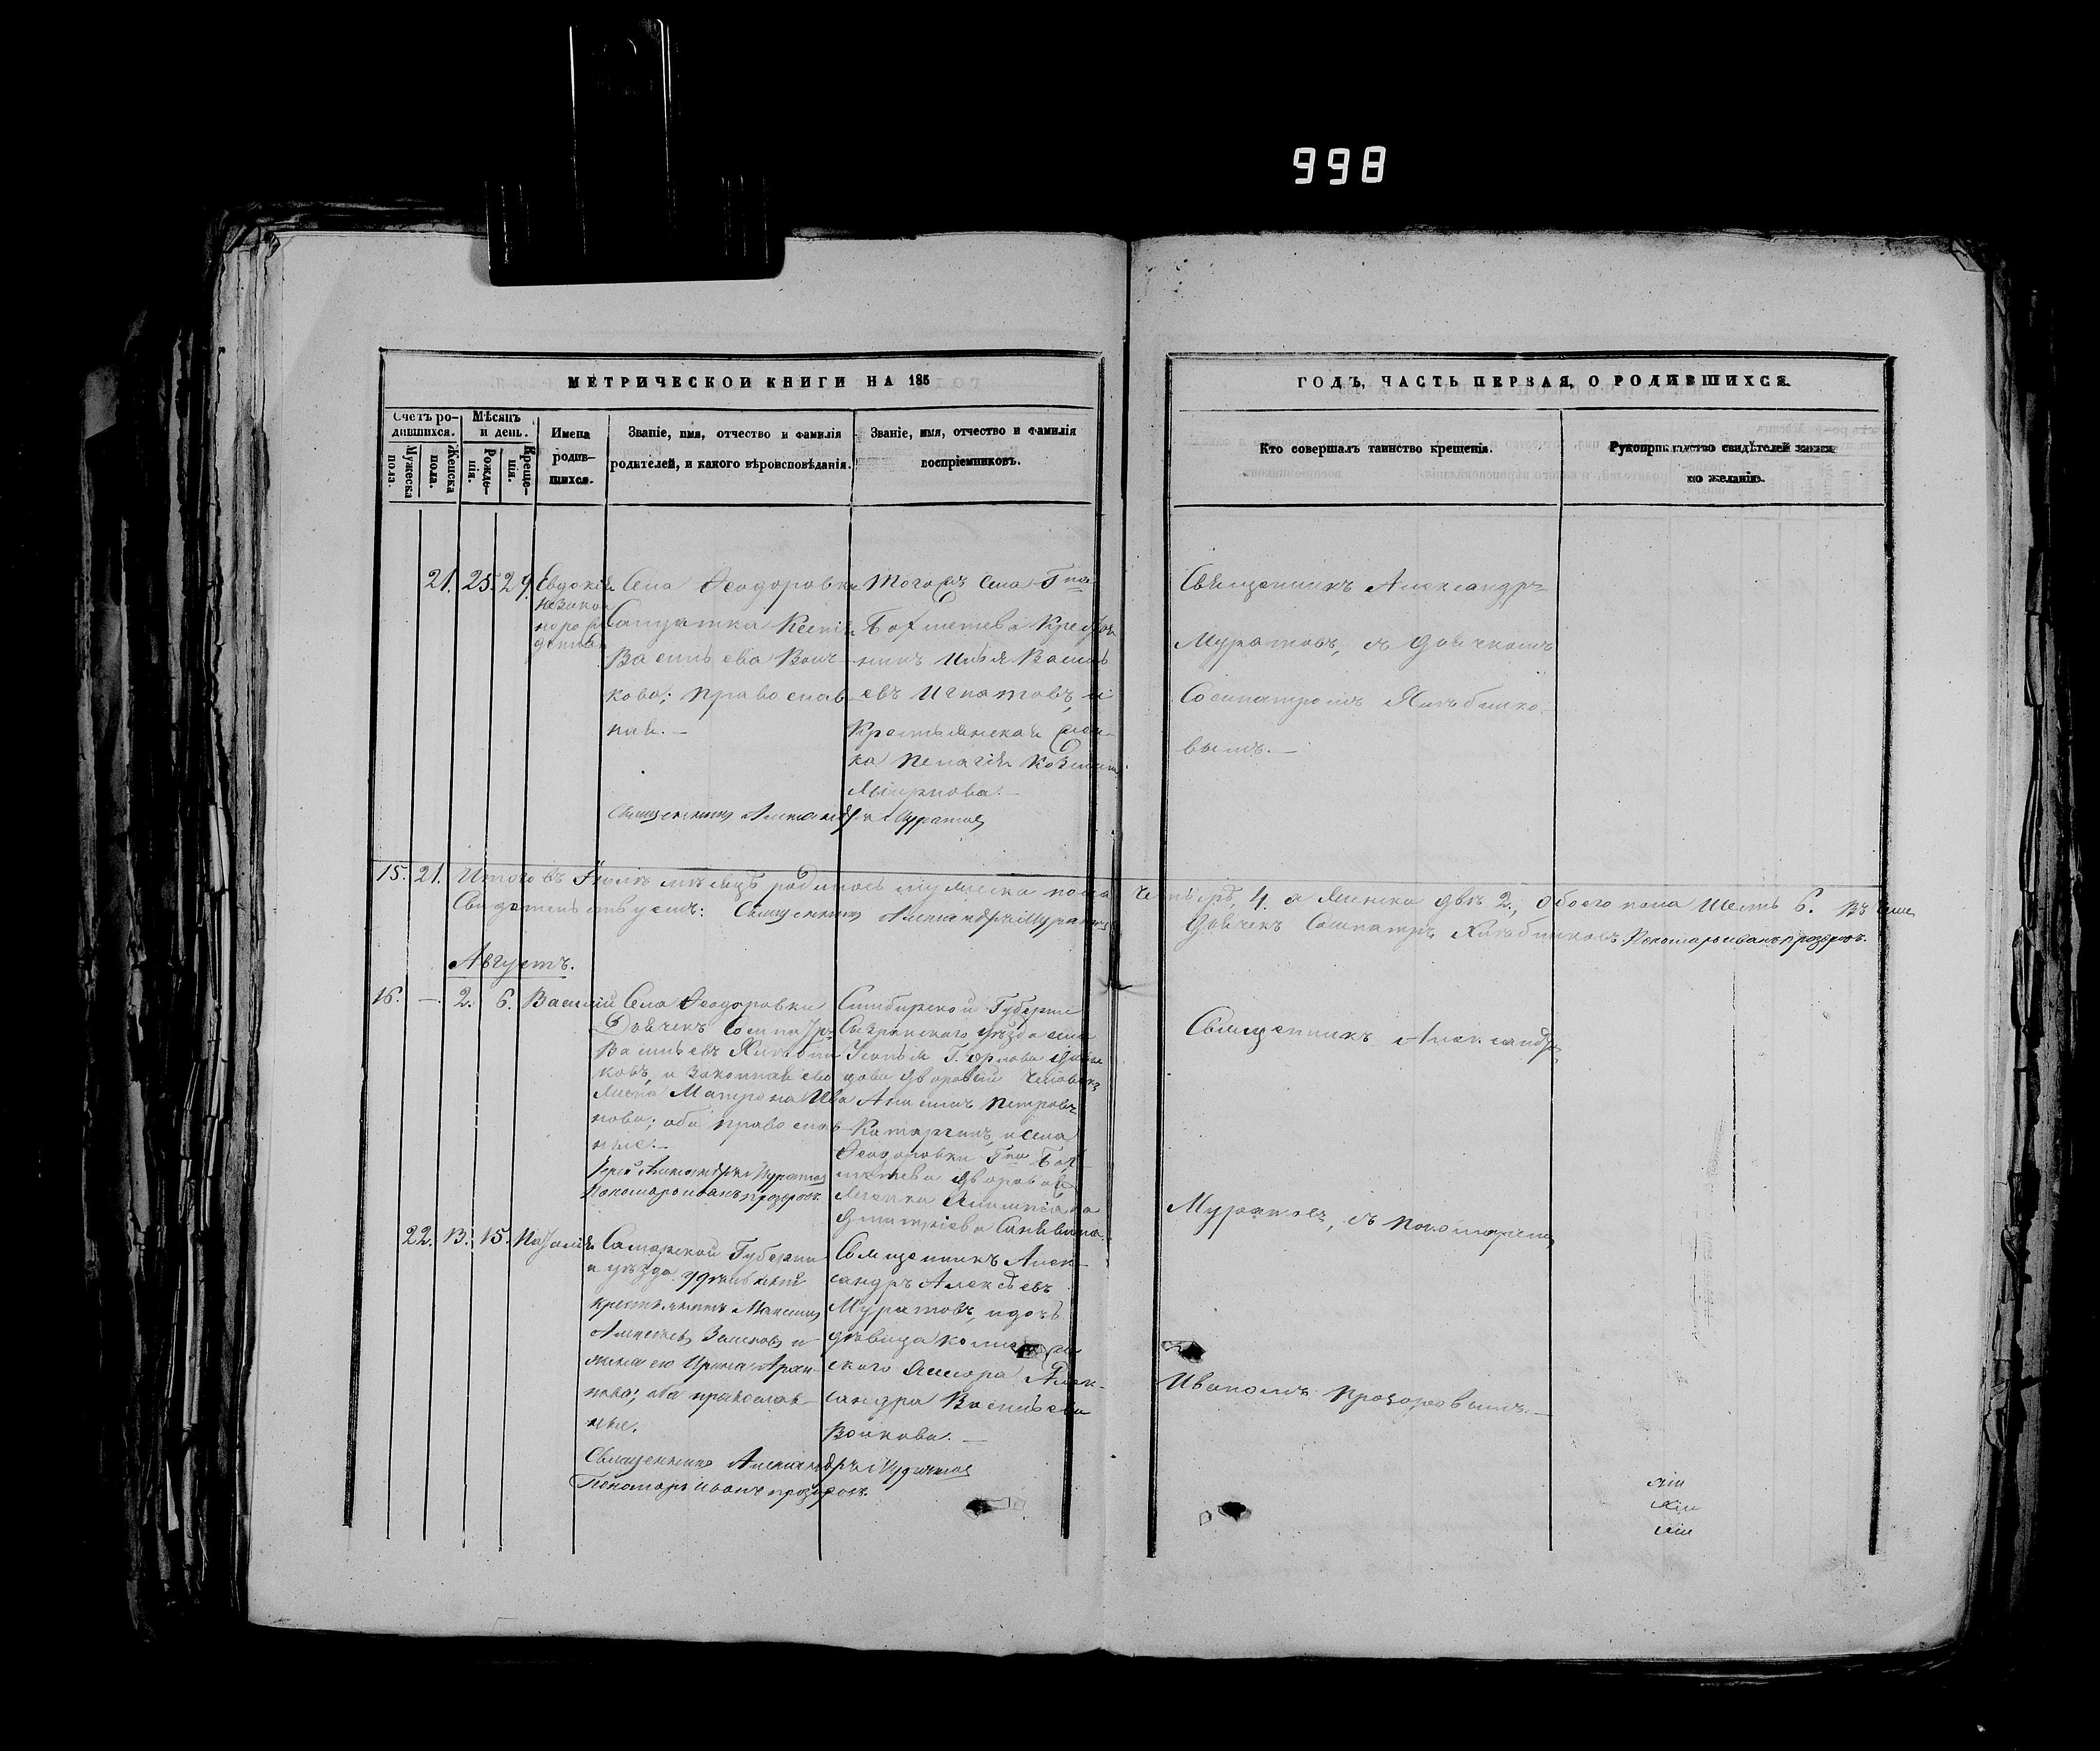 998
МЕТРИЧЕСКОЙ КНИГИ НА 185
ГОДЪ, ЧАСТЬ ПЕРВАЯ, О РОДИВШИХСЯ.
Счетъ ро-
дившихся.
Мужеска пола.
Женска пола.
Мѣсяцъ
и день.
Рожде-
нія.
Креще-
нія.
Имена
родив-
шихся.
Званіе, имя, отчество и фамилія
родителей, и какого вѣроисповѣданія.
Званіе, имя, отчество и фамилія
воспріемниковъ.
Кто совершалъ таинство крещенія.
Рукоприкладство свидѣтелей записи
по желанію.
21. 25. 29. Евдокія
незакон
норож
денная
Села Ѳеодоровки
Солдатка
Васильева Вол
кова; православ
ная. –
Тогожъ села Гна
Бахметева Крестья
нинъ Илья Василь
евъ Игнатовъ, и
Крестьянская
ка Пелагія Козмина
Миронова. –
Священникъ Александръ Муратовъ
Священникъ Александръ
Муратовъ, съ Дьячкомъ
Сосипатромъ Хлѣбнико
вымъ. –
15. 21. Итого въ Іюлѣ мѣсяцѣ родилось мужеска пола четыре, 4, а женска двѣ 2., обоего пола шесть 6. Въ чемъ
Свидетельствуемъ: Священникъ Александръ Муратовъ
Дьячекъ Сосипатръ Хлѣбниковъ. Пономарь Иванъ Прозоровъ.
Августъ.
16. – 2. 6. Василій
Села Ѳеодоровки
Дьячекъ Сосипатръ
Васильевъ Хлѣбни
ковъ, и законная его
жена Матрона Ива
нова; оба православ
ные. –
Іерей Александръ Муратовъ
Пономарь Иванъ Прозоровъ.
Симбирской Губерніи
Сызранскаго уѣзда села
Усолья Г. Орлова Давы
дова дворовый человекъ
Петровъ
Катаргинъ, и села
Ѳеодоровки Гна Бах
метева дворовая
женка
Дмитріева
Священникъ Александръ
Муратовъ, съ пономаремъ
Иваномъ Прозоровымъ. –
22. 13. 15. Наталія
Самарской Губерніи
и уѣзда удѣльный
крестьянинъ Максимъ
Алексѣевъ и
жена его Ирина
нова; оба православ
ные.
Священникъ Александръ Муратовъ
Пономарь Иванъ Прозоровъ.
Священникъ Алек
сандръ Алексѣевъ
Муратовъ, и дочь
дѣвица
скаго Алек
сандра Васильева
Волкова. –